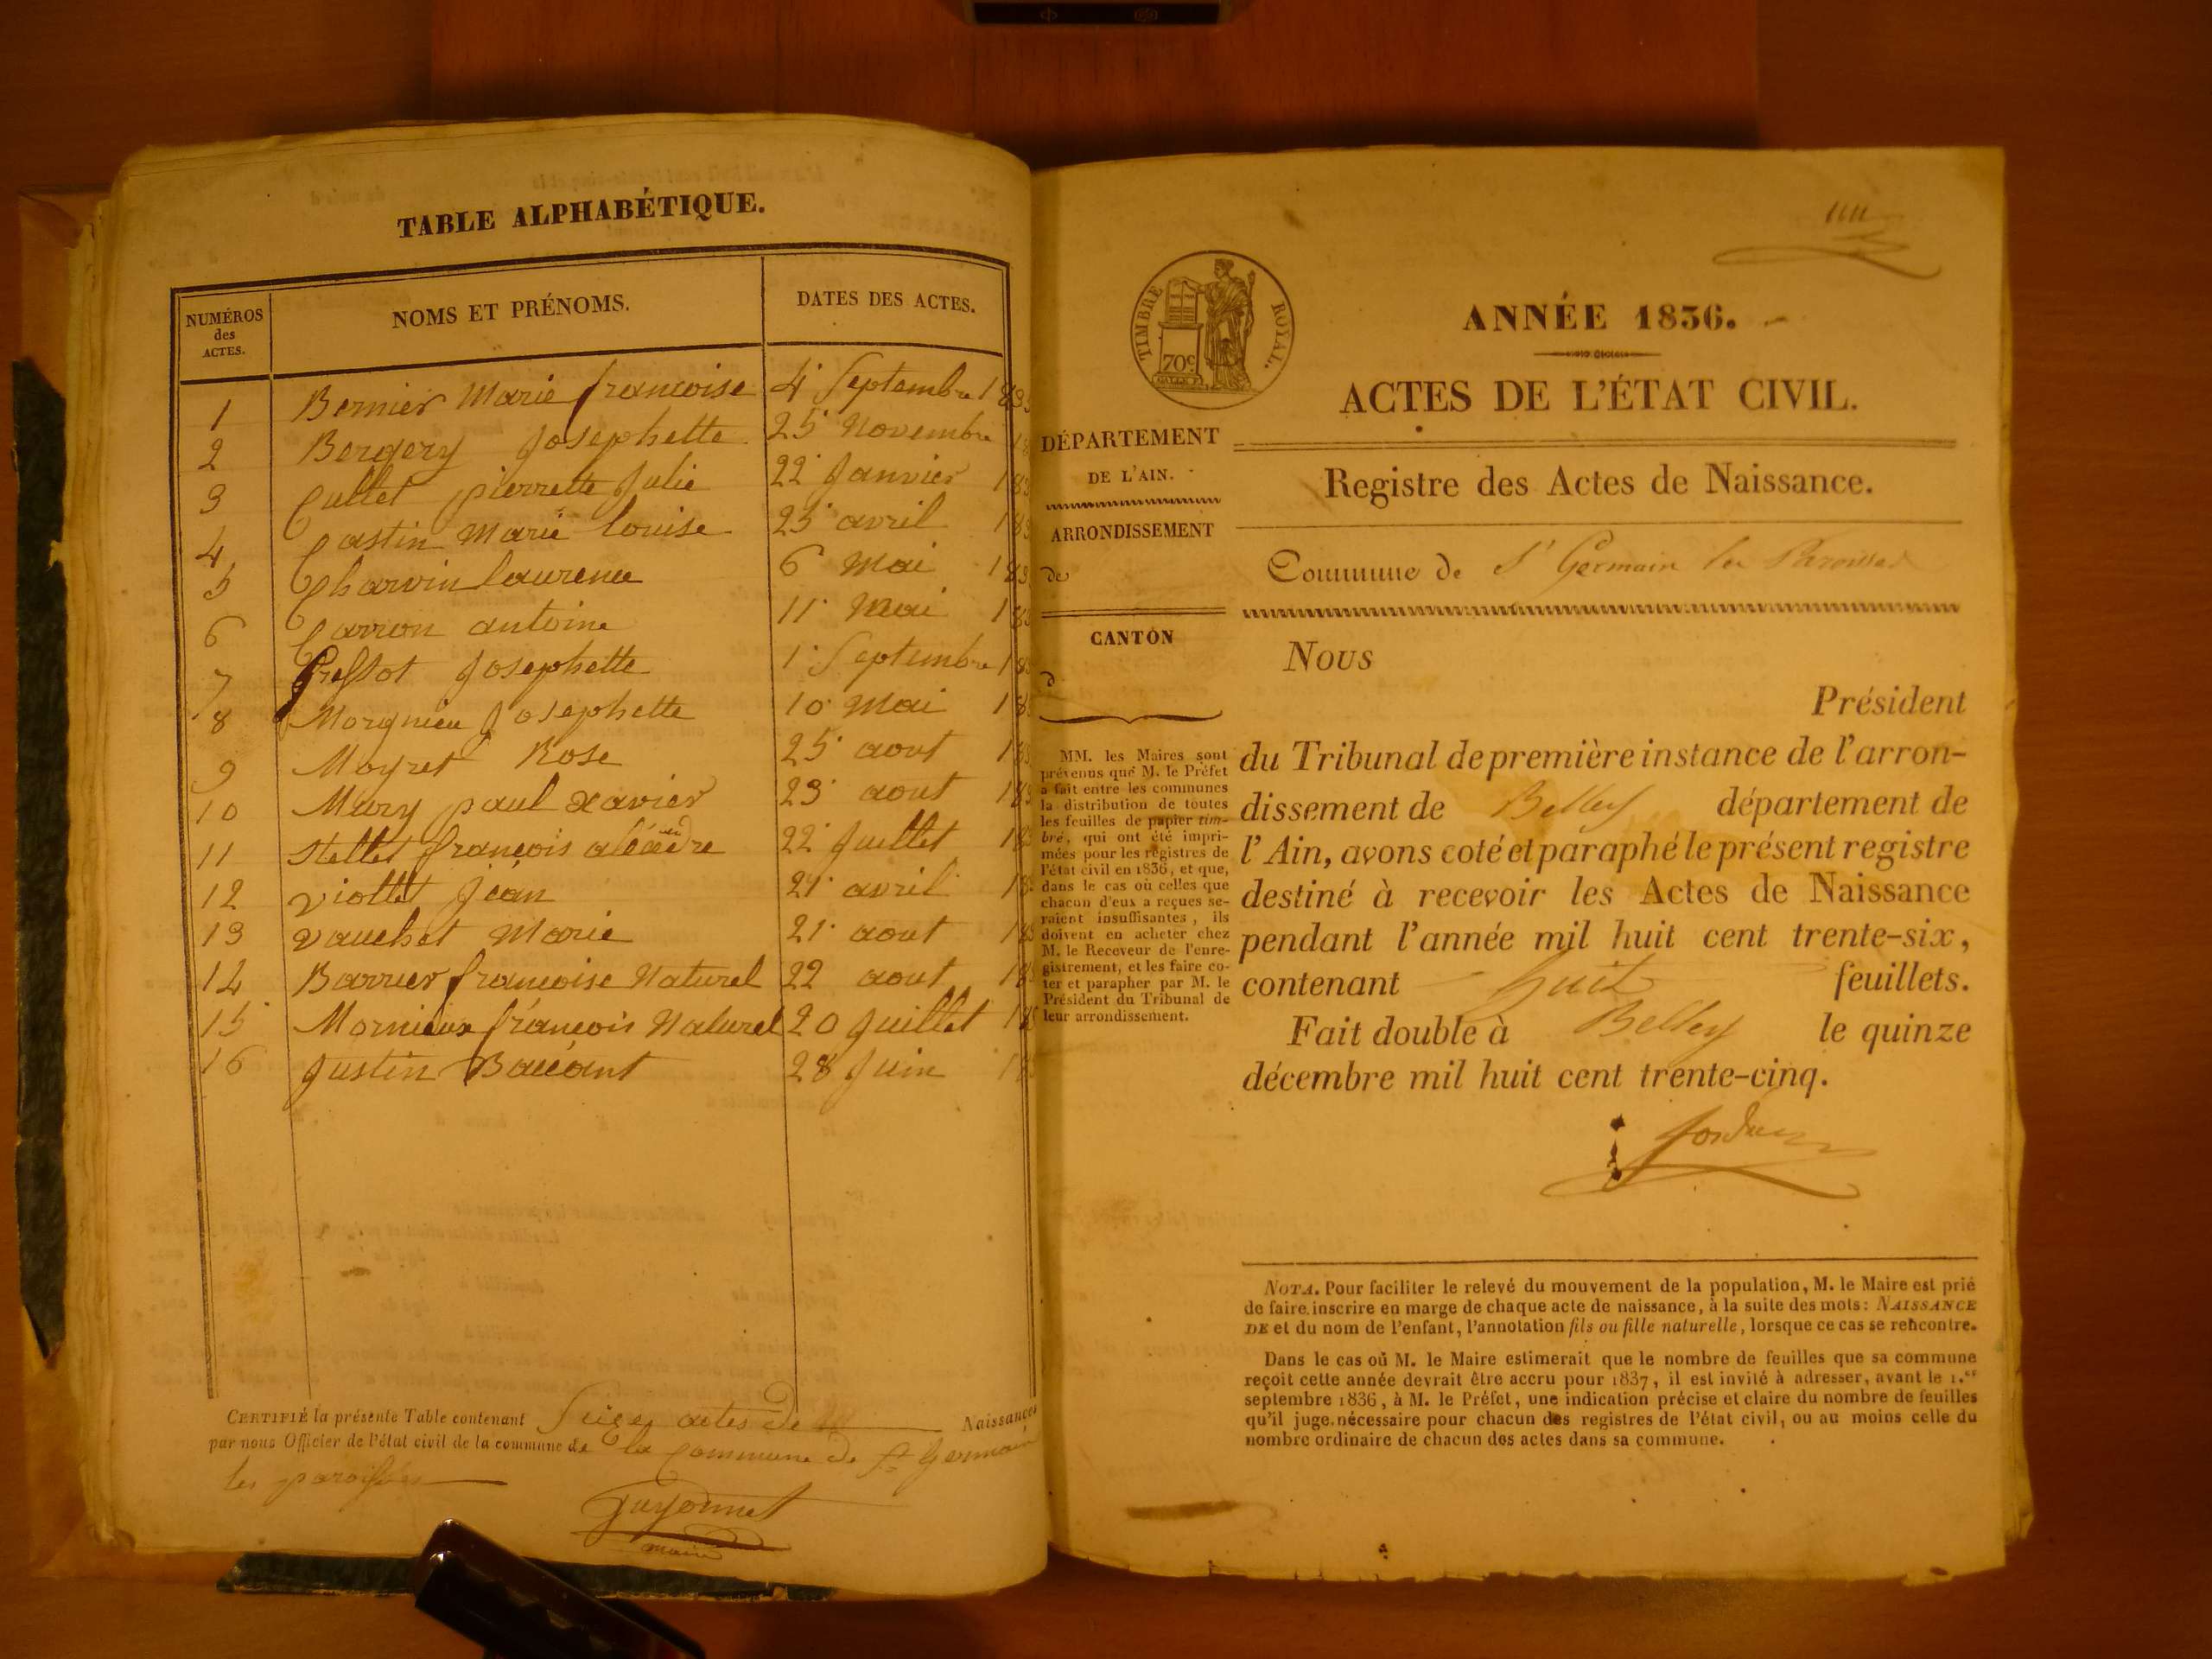 TABLE ALPHABÉTIQUE.
NUMÉROS
des
ACTES.
NOMS ET PRÉNOMS.
DATES DES ACTES.
1 Bernier Marie françoise 4 Septembre 183
2 Bergery Josephette 25 Novembre 18
3 Cullet pierrette Julie 22 Janvier 183
4 Castin Marie louise 25 avril 183
5 Charvin laurence 6 Mai 183
6 Carron antoine 11 Mai 183
7 Josephette 1 Septembre 183
8 Morgnieu Josephette 10 Mai 183
9 Moyret Rose 25 aout 183
10 Mury paul xavier 23 aout 183
11 Stellet françois 22 Juillet 183
12 viollet Jean 21 avril 18
13 vauchet Marie 21 aout 183
14 Barrier françoise Naturel 22 aout 18
15 Mornieux françois Naturel 20 Juillet 18
16 Justin 28 Juin 18
CERTIFIÉ la présente Table contenant Seize actes de Naissances
par nous Officier de l'état civil de la commune de la commune de St Germain
les paroisses
Guyonnet
maire
ANNÉE 1836.
TIMBRE ROYAL.
70c
ACTES DE L'ÉTAT CIVIL.
DÉPARTEMENT
DE L'AIN.
Registre des Actes de Naissance.
ARRONDISSEMENT
de
Commune de St Germain les Paroisses
CANTON
d
Nous
Président
du Tribunal de première instance de l'arron-
dissement de Belley département de
l'Ain, avons coté et paraphé le présent registre
destiné à recevoir les Actes de Naissance
pendant l'année mil huit cent trente-six,
contenant huit feuillets.
Fait double à Belley le quinze
décembre mil huit cent trente-cinq.
MM. les Maires sont
prévenus que M. le Préfet
a fait entre les communes
la distribution de toutes
les feuilles de papier tim-
bré, qui ont été impri-
mées pour les registres de
l'état civil en 1836, et que,
dans le cas où celles que
chacun d'eux a reçues se-
raient insuffisantes, ils
doivent en acheter chez
M. le Receveur de l'enre-
gistrement, et les faire co-
ter et parapher par M. le
Président du Tribunal de
leur arrondissement.
NOTA. Pour faciliter le relevé du mouvement de la population, M. le Maire est prié
de faire inscrire en marge de chaque acte de naissance, à la suite des mots: NAISSANCE
DE et du nom de l'enfant, l'annotation fils ou fille naturelle, lorsque ce cas se rencontre.
Dans le cas où M. le Maire estimerait que le nombre de feuilles que sa commune
reçoit cette année devrait être accru pour 1837, il est invité à adresser, avant le 1.er
septembre 1836, à M. le Préfet, une indication précise et claire du nombre de feuilles
qu'il juge nécessaire pour chacun des registres de l'état civil, ou au moins celle du
nombre ordinaire de chacun des actes dans sa commune.